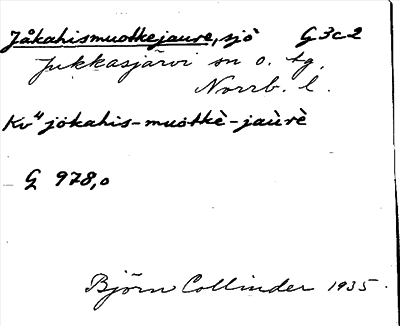 Jåkahismuotkejaure, sjö G3c2
Jukkasjärvi sn o. tg.
Norrb. l.
Kv⁴ jòkahis-muòtkè-jaùrè
G 978,0
Björn Collinder 1935.